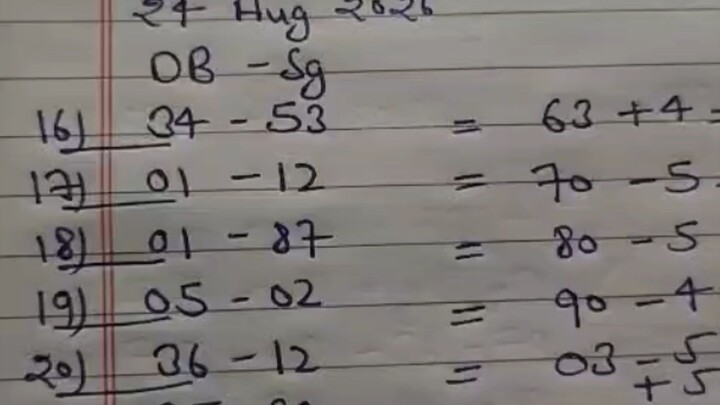 24 Aug 2026
DB - Sg
16) 34 - 53 = 63 + 4 =
17) 01 - 12 = 70 - 5
18) 01 - 87 = 80 - 5
19) 05 - 02 = 90 - 4
20) 36 - 12 = 03 - 5
+ 5